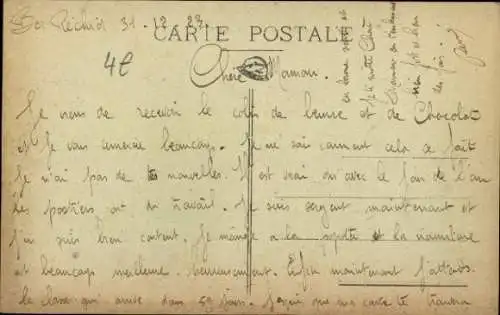 Ber Rechid 31-12-23
CARTE POSTALE
4€
Chère Maman.
Je viens de recevoir le colis de beurre et de Chocolat
et je vous remercie beaucoup. Je ne sais comment cela se fait
Je n'ai pas de nouvelles. Il est vrai qu'avec le jour de l'an
les postiers ont du travail. Je suis sergent maintenant et
j'en suis bien content. Je mange a la popote et la nourriture
est beaucoup meilleure heureusement. Enfin maintenant j'attends
la classe qui arrive dans 59 jours. J'espère que ma carte te trouvera
en bonne santé et